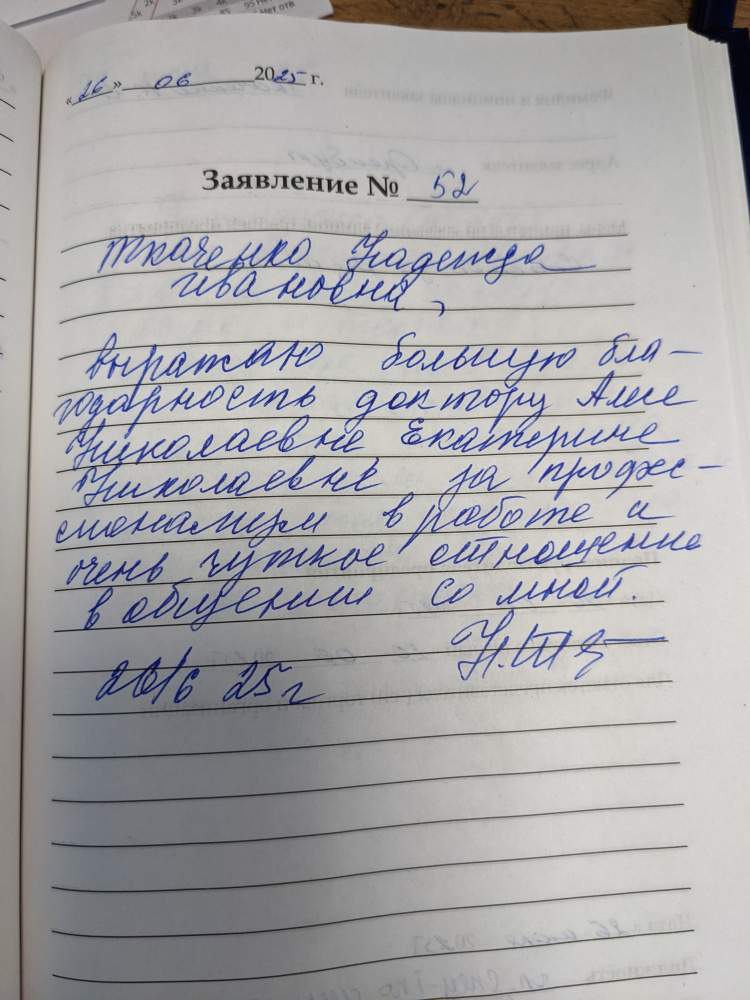 «26» 06 2025 г.
Заявление № 52
Ткаченко Надежда
Ивановна,
выражаю большую бла-
годарность доктору Алие
Николаевне Екатерине
Николаевне за професс-
сионализм в работе и
очень чуткое отношение
в общении со мной.
26/6 25 г